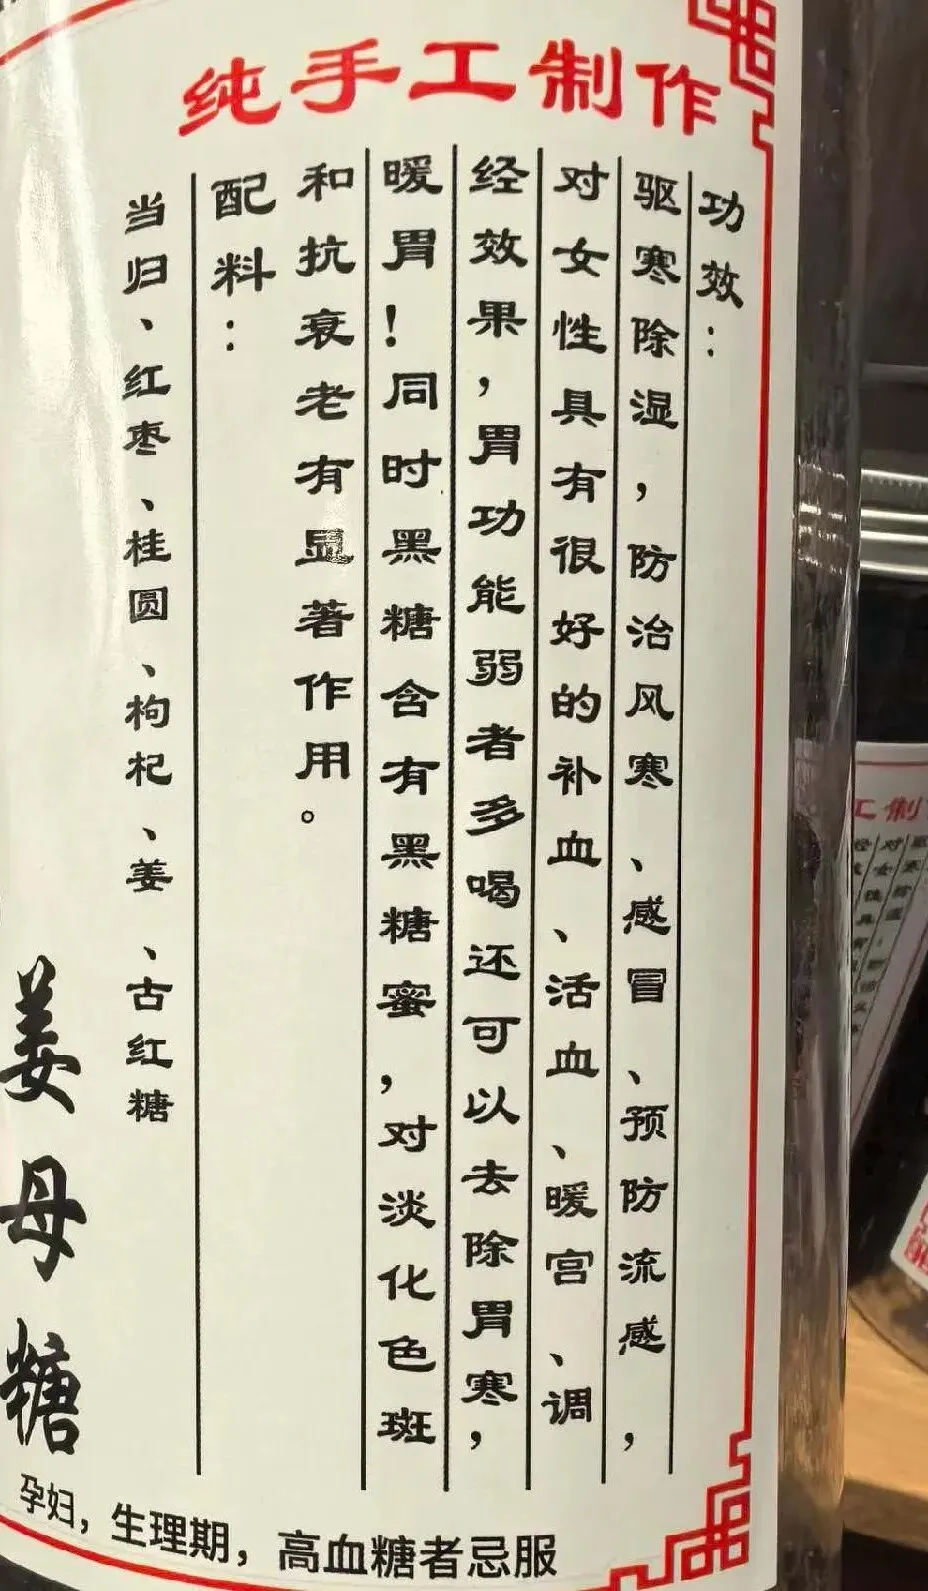 纯手工制作
功效：
驱寒除湿，防治风寒、感冒、预防流感，
对女性具有很好的补血、活血、暖宫、调
经效果，胃功能弱者多喝还可以去除胃寒，
暖胃！同时黑糖含有黑糖蜜，对淡化色斑
和抗衰老有显著作用。
配料：
当归、红枣、桂圆、枸杞、姜、古红糖
姜母糖
孕妇，生理期，高血糖者忌服
工制